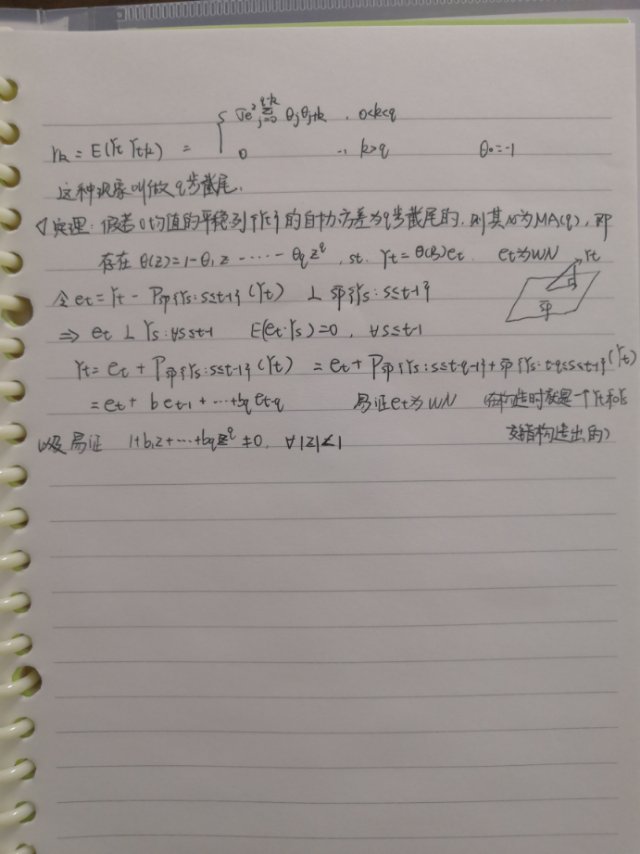 σe² Σ_{j=0}^{q-k} θj θj+k , 0<k<q
rk = E(Yt Yt+k) = { 0 , k>q θ0=-1
这种现象叫做q步截尾.
定理: 假若0均值的平稳列{Yt}的自协方差为q步截尾的, 则其必为MA(q), 即
存在 θ(z)=1-θ1z-····-θqz^q , st. Yt=θ(B)et. et为WN Yt
令et = Yt - P_sp{Ys:s≤t-1}(Yt) ⊥ sp{Ys:s≤t-1} sp
⇒ et ⊥ Ys:∀s≤t-1 E(et·Ys)=0, ∀s≤t-1
Yt = et + P_sp{Ys:s≤t-1}(Yt) = et + P_sp{Ys:s≤t-q-1}+sp{Ys:t-q≤s≤t-1}(Yt)
= et + b et-1 + ···+bq et-q 易证et为WN (在构造时就是一个Yt和
交错构造出的)
以及易证 1+b1z+···+bqz^q ≠0, ∀|z|<1